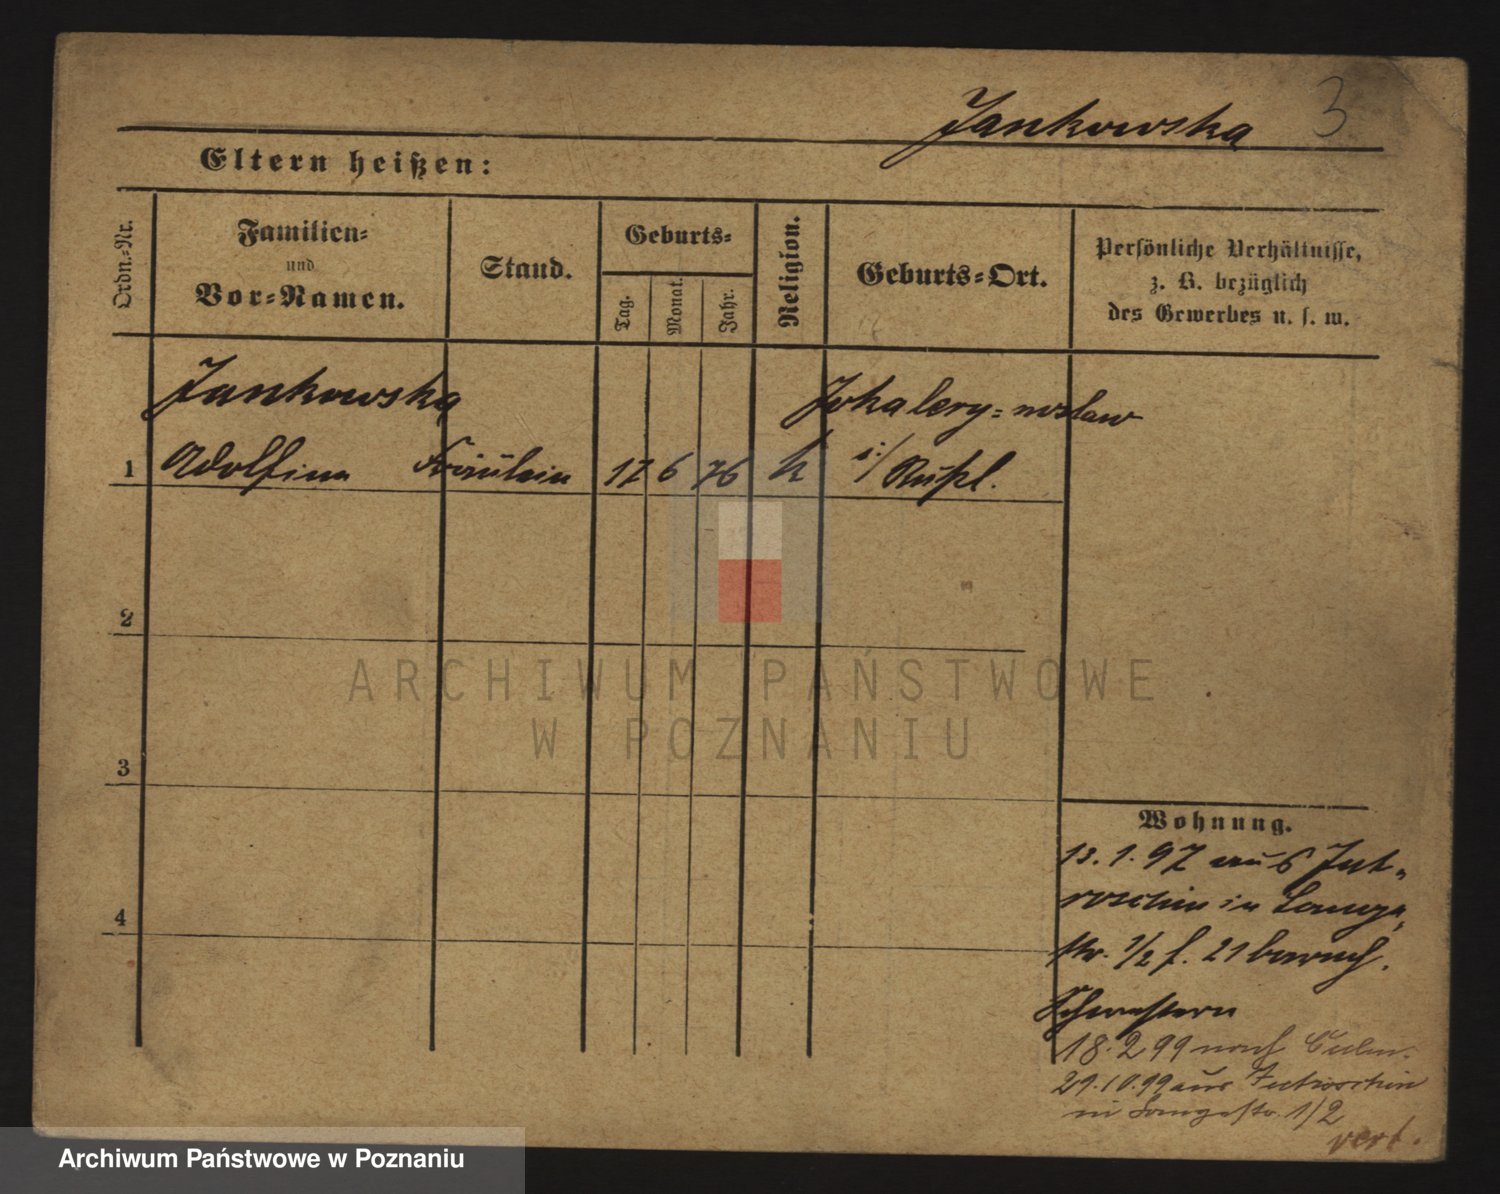 Jankowska 3
Eltern heißen:
Ordn.-Nr.
Familien-
und
Vor-Namen.
Stand.
Geburts-
Tag.
Monat.
Jahr.
Religion.
Geburts-Ort.
Persönliche Verhältnisse,
z. B. bezüglich
des Gewerbes u. s. w.
Jankowska
1 Adolfina Fräulein 17 6 76 k i/ Rußl.
2
3
4
Wohnung.
13. 1. 97 aus Jut-
roschin in Lange
str. 1/2 f. 21
Schwestern
18. 2 99 nach Culm.
29. 10. 99 aus Jutroschin
in Langestr. 1/2
verh.
ARCHIWUM PAŃSTWOWE
W POZNANIU
Archiwum Państwowe w Poznaniu